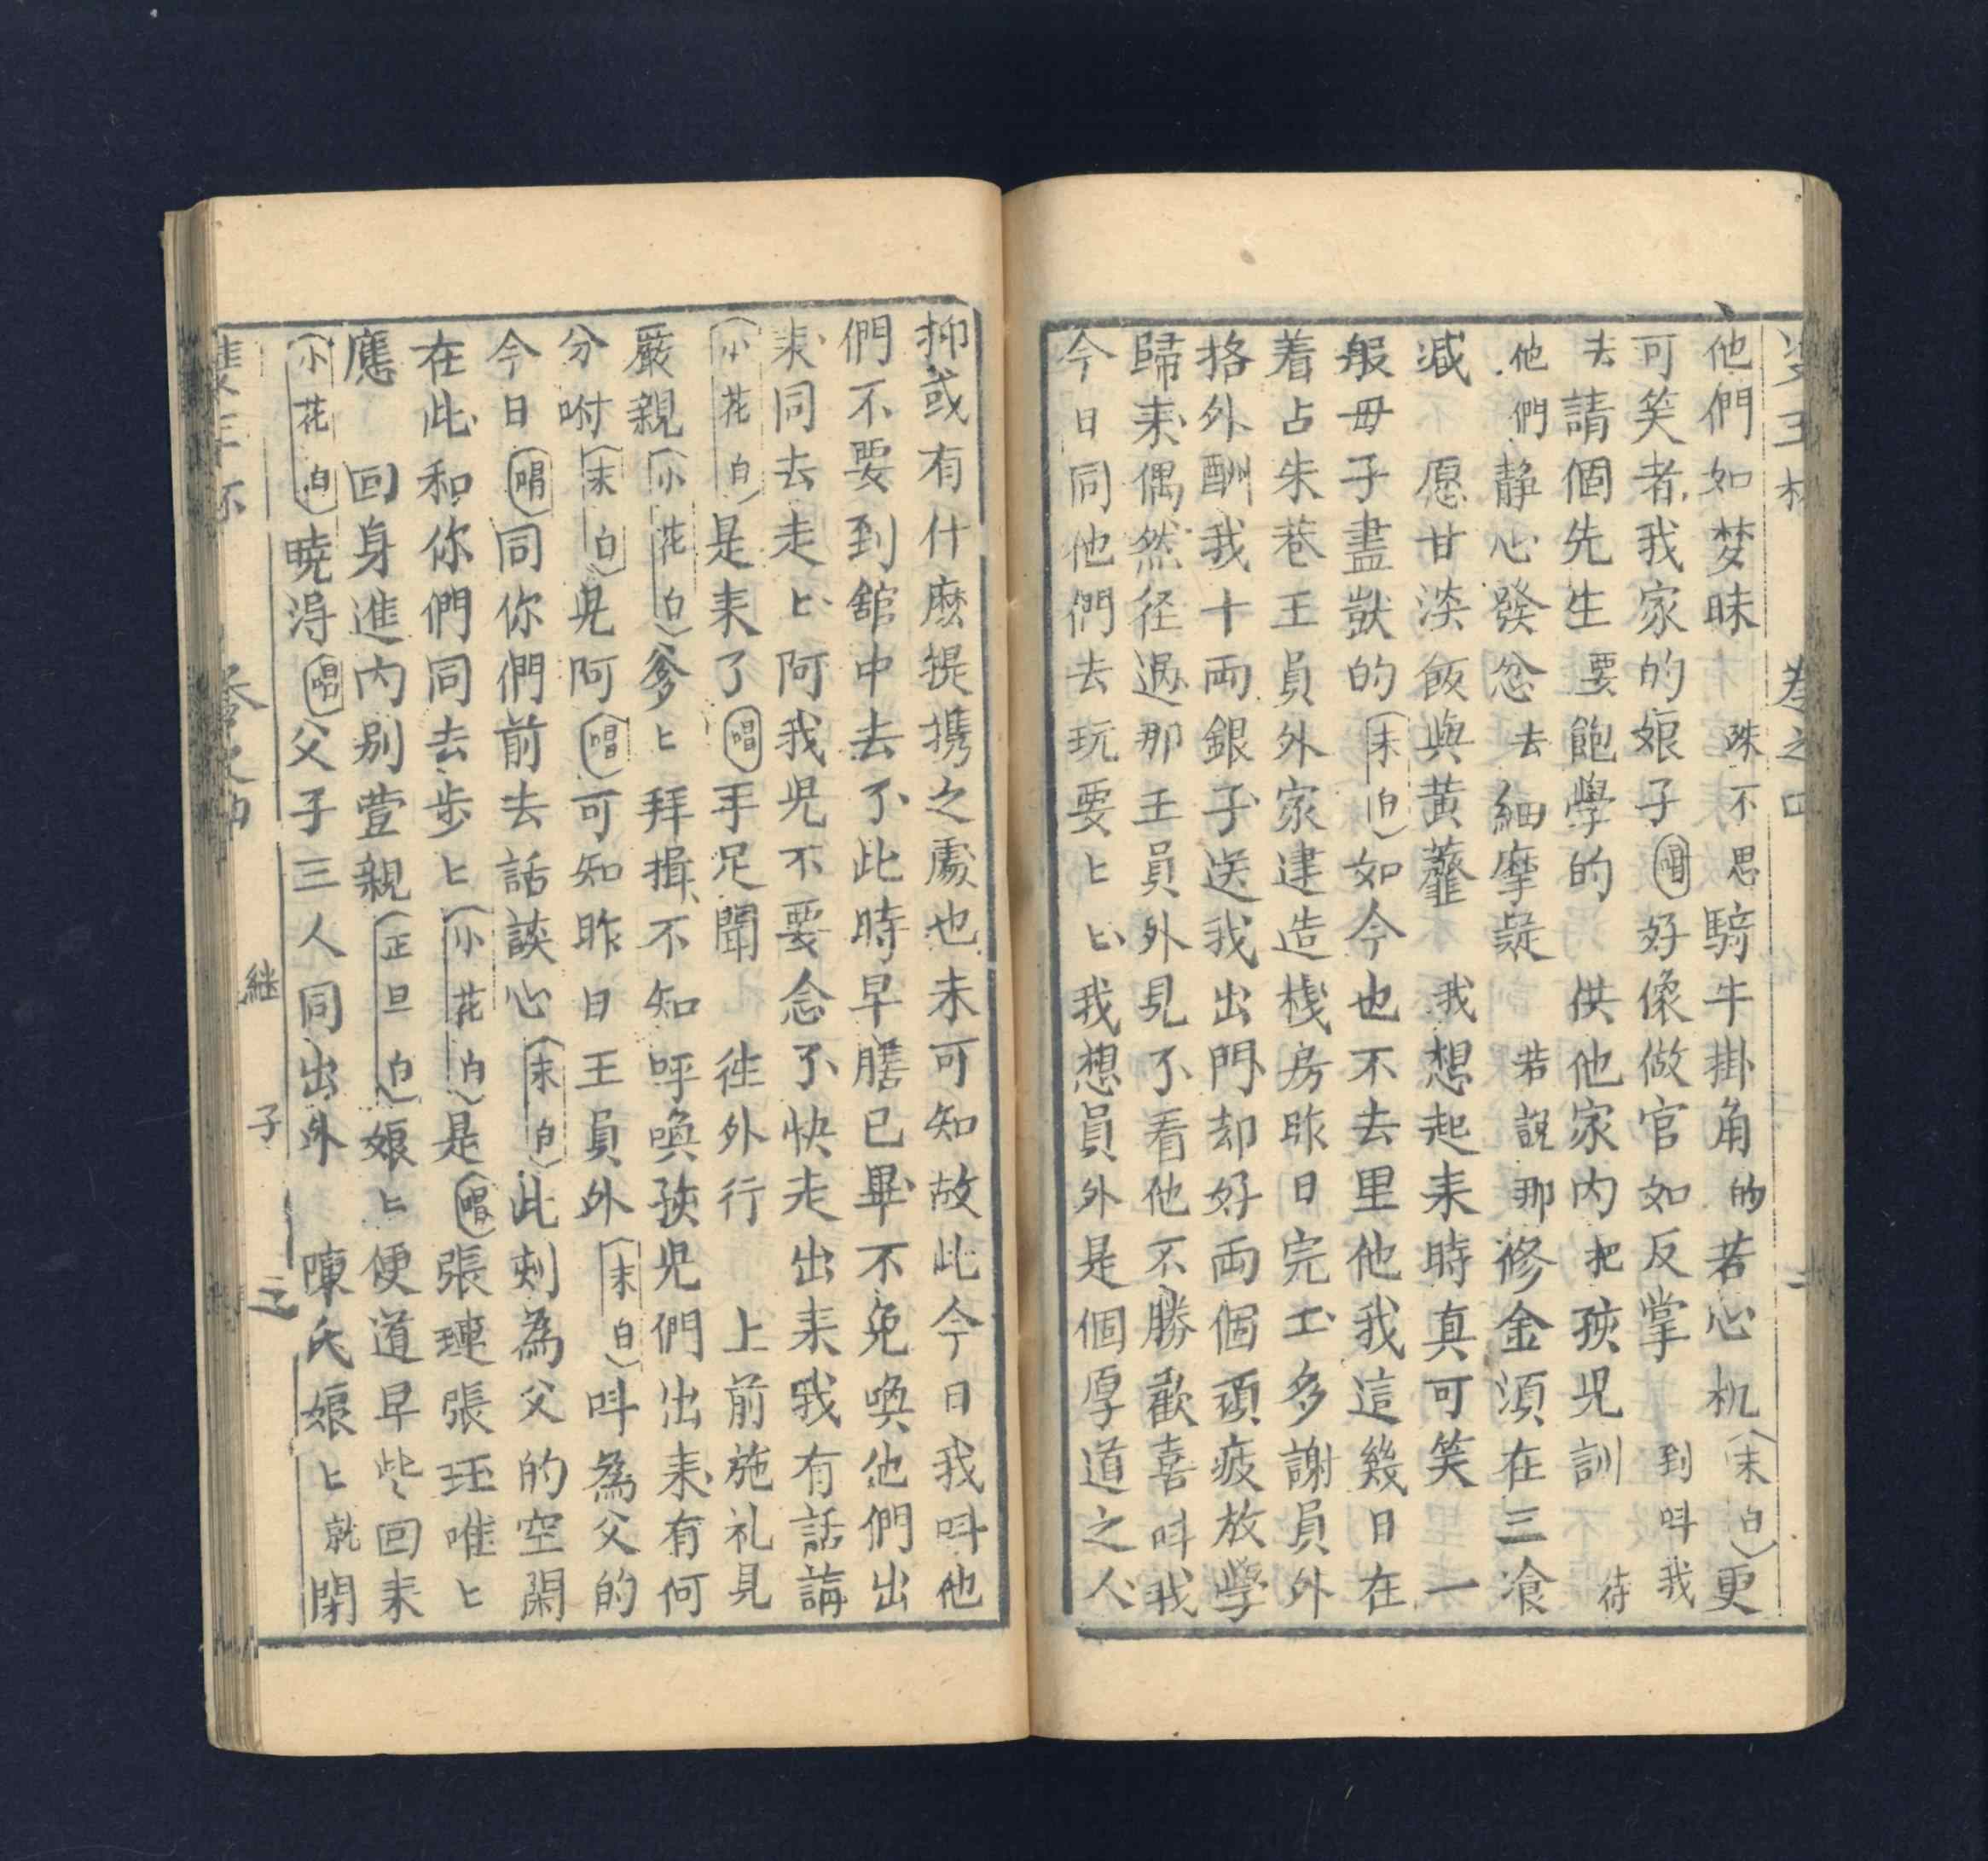 卷之四
他們如梦昧 殊不思騎牛掛角的若心机(末白)更
可笑者我家的娘子(唱)好像做官如反掌 到呌我
去請個先生要飽學的 供他家内把孩児訓 待
他們静心發忿去細摩疑 若説那修金湏在三飡
减 愿甘淡飯與黃虀 我想起来時真可笑一
般毋子盡獃的(末白)如今也不去里他我這幾日在
着占朱巷王員外家建造棧房昨日完工多謝員外
挌外酬我十両銀子送我出門却好両個頑疲放學
歸来偶然径過那王員外見了看他不勝歡喜呌我
今日同他們去玩耍匕匕我想員外是個厚道之人
抑或有什麽提携之處也未可知故此今日我呌他
們不要到舘中去了此時早膳已畢不免喚他們出
来同去走匕阿我児不要念了快走出来我有話講
(小花白)是来了(唱)手足聞 徃外行 上前施礼見
嚴親(小花白)爹匕拜揖不知呼喚孩児們出来有何
分咐(末白)児阿(唱)可知昨日王員外(末白)呌為父的
今日(唱)同你們前去話談心(末白)此刻為父的空閑
在此和你們同去步匕(小花白)是(唱)張璉張珏唯匕
應 回身進内别萱親(正旦白)娘匕便道早些回来
(小花白)曉淂(唱)父子三人同出外 陳氏娘匕就閉
継 子 二